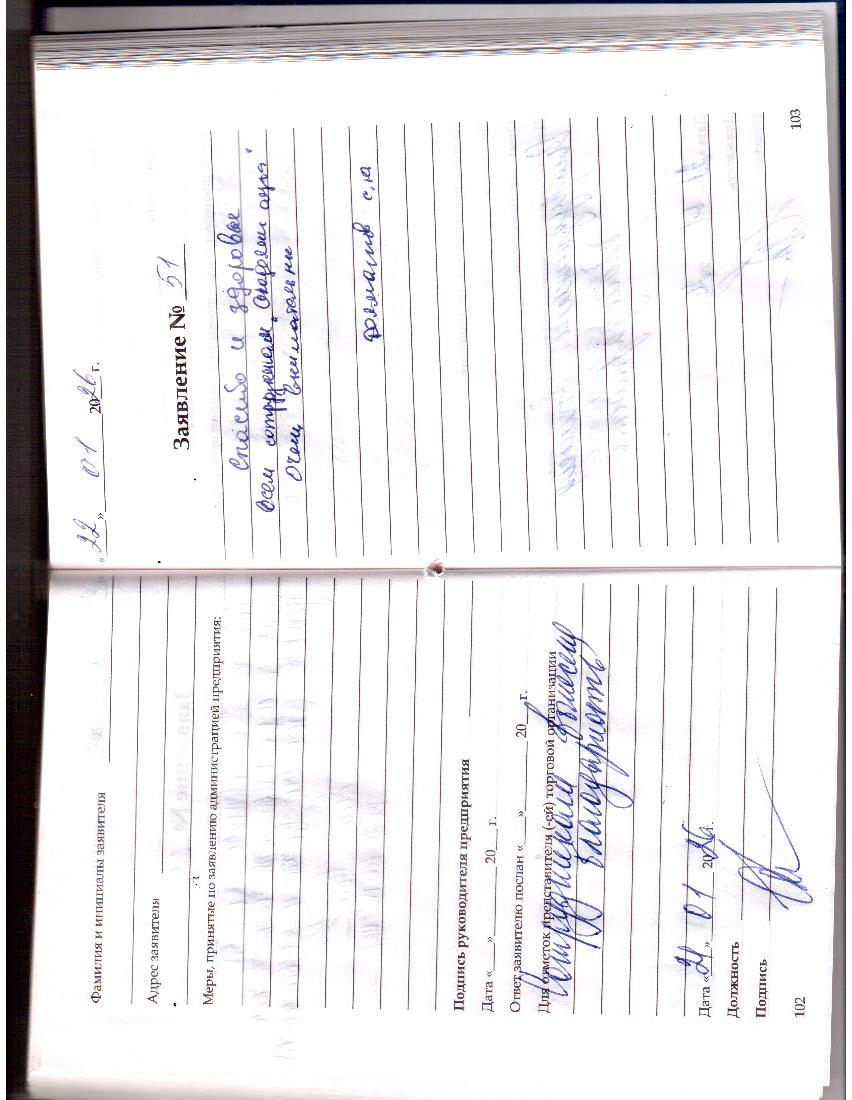 Фамилия и инициалы заявителя
Адрес заявителя
Меры, принятые по заявлению администрацией предприятия:
Подпись руководителя предприятия
Дата « » 20 г.
Ответ заявителю послан « » 20 г.
Для отметок представителя (-ей) торговой организации
Сотрудникам вынесена
благодарность
Дата «21» 01 2026г.
Должность
Подпись
102
«22» 01 2026 г.
Заявление № 51
Спасибо и здоровье
всем сотрудникам
Очень внимательны
С.Ю
103